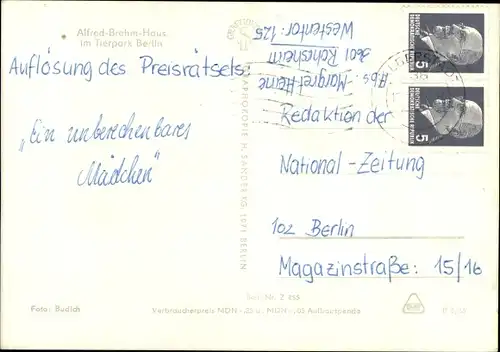 Alfred-Brehm-Haus
im Tierpark Berlin
Auflösung des Preisrätsels:
„Ein unberechenbares
Mädchen“
Abs. Margret Heine
3601 Rohrsheim
Westerntor 125
DEUTSCHE
DEMOKRATISCHE REPUBLIK
5
DEUTSCHE
DEMOKRATISCHE REPUBLIK
5
Redaktion der
National-Zeitung
102 Berlin
Magazinstraße: 15/16
H. SANDBERG, 1071 BERLIN
Best.-Nr. Z 855
Foto: Budich
Verbraucherpreis MDN -,20 u. MDN -,05 Aufbauspende